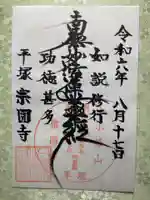 令和六年 八月十七日
如説修行
南無妙法蓮華経
功徳甚多
平塚 宗圓寺